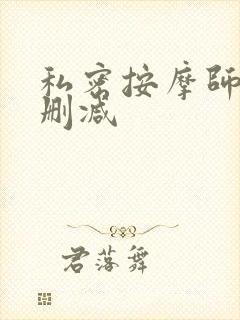 私密按摩师
删减
君落舞